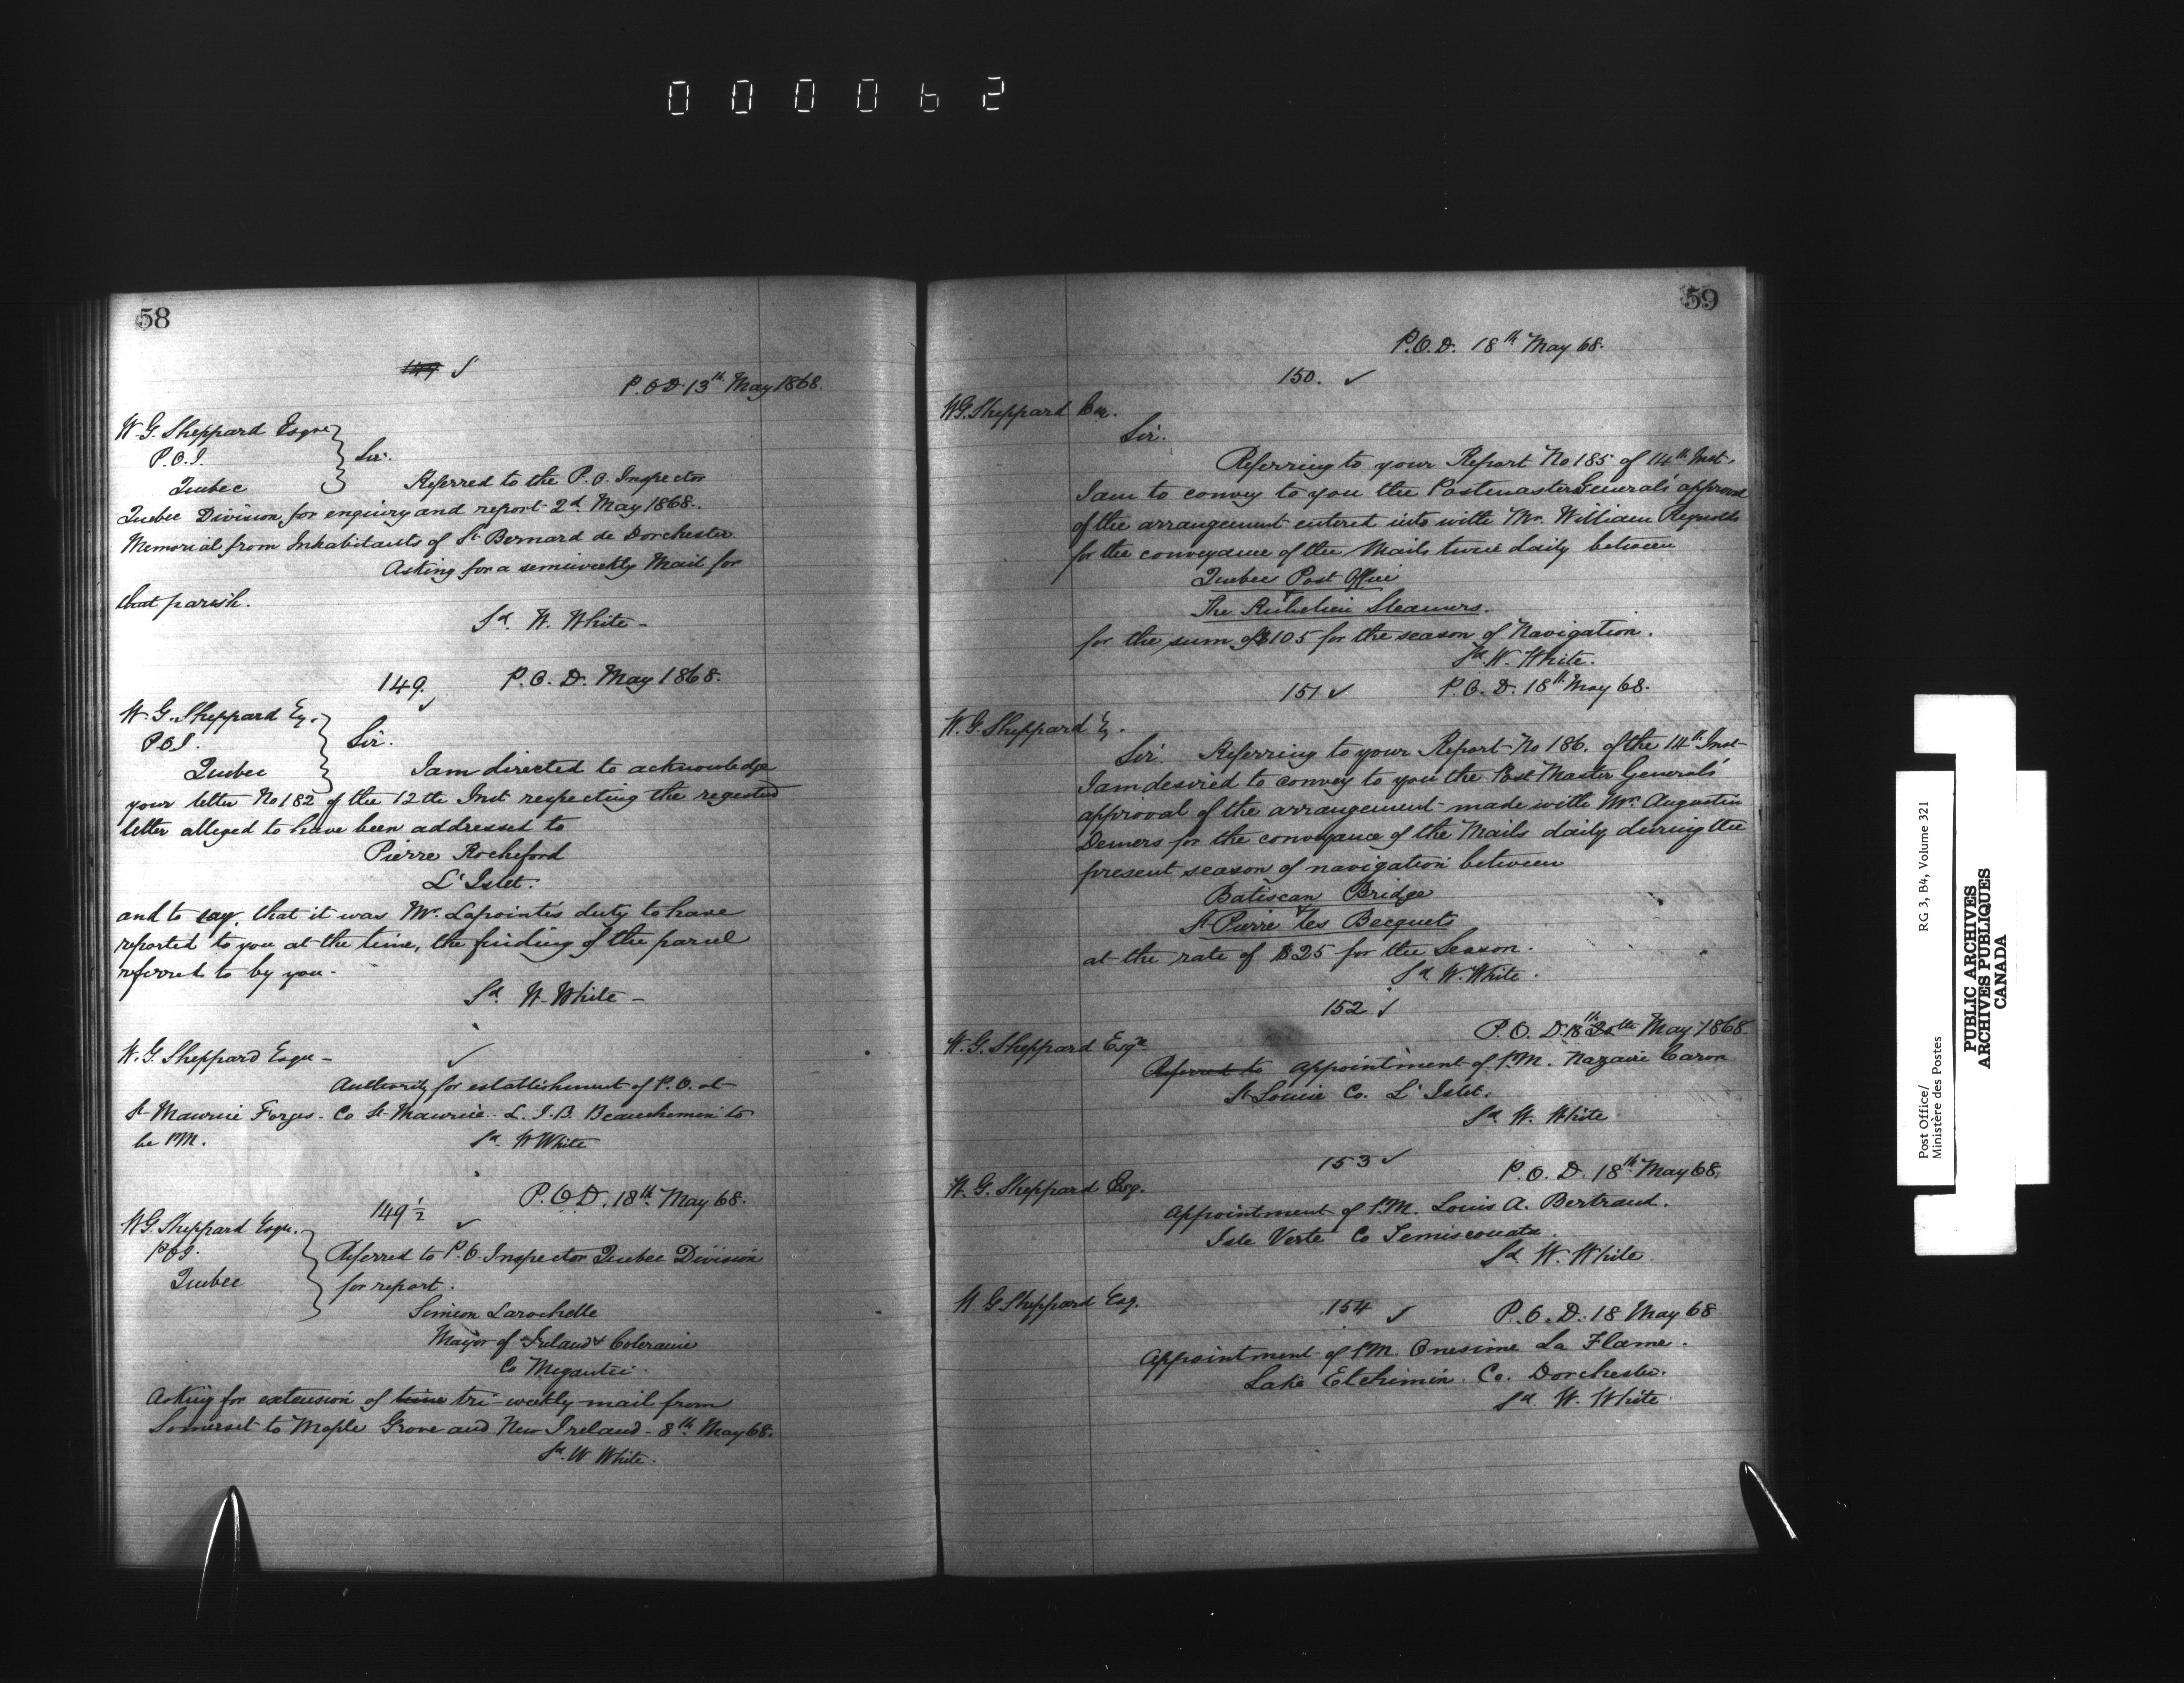 000062
58
149 ✓
P.O.D. 13th May 1868.
W. G. Sheppard Esqre
P.O.I.
Quebec
Sir.
Referred to the P.O. Inspector
Quebec Division for enquiry and report 2d May 1868.
Memorial from Inhabitants of St Bernard de Dorchester
Asking for a semiweekly Mail for
that parish.
Sd. W. White -
149. ✓
P.O.D. May 1868.
W. G. Sheppard Eq.
P.O.I.
Quebec
Sir.
I am directed to acknowledge
your letter No 182 of the 12th Inst respecting the regested
letter alleged to have been addressed to
Pierre Rocheford
L'Islet.
and to say that it was Mr. Lapointe's duty to have
reported to you at the time, the finding of the parcel
referred to by you -
Sd. W. White -
W. G. Sheppard Esqu - ✓
Authority for establishment of P.O. at
St Maurice Forges - Co St Maurice. L. I. B. Beauchemin to
be PM.
Sd. W White
149 1/2 ✓
P.O.D. 18th May 68.
W G. Sheppard Esqu.
P.O.I.
Quebec
Referred to P.O. Inspector Quebec Division
for report.
Simeon Larochelle
Mayor of Ireland & Coleraine
Co Megantic.
Asking for extension of time tri-weekly mail from
Somerset to Maple Grove and New Ireland - 8th May 68.
Sd. W White.
59
P.O.D. 18th May 68.
150. ✓
W G. Sheppard Esq.
Sir.
Referring to your Report No 185 of 14th Inst.
I am to convey to you the Postmaster General's approval
of the arrangement entered into with Mr. William Reynolds
for the conveyance of the Mails twice daily between
Quebec Post Office
&
The Richelieu Steamers.
for the sum of $105 for the season of Navigation.
Sd. W. White.
151 ✓
P.O.D. 18th May 68.
W. G. Sheppard Eq.
Sir. Referring to your Report No 186. of the 14th Inst
I am desired to convey to you the Post Master General's
approval of the arrangement made with Mr. Augustin
Demers for the conveyance of the Mails daily during the
present season of navigation between
Batiscan Bridge
&
St Pierre les Becquets
at the rate of $25 for the Season.
Sd. W. White.
152 ✓
P.O.D. 18th 20th May 1868
W. G. Sheppard Esqe.
Referred to Appointment of P.M. Nazaire Caron
St Louise Co. L'Islet.
Sd W. White
153 ✓
P.O.D. 18th May 68,
W. G. Sheppard Esq.
Appointment of P.M. Louis A. Bertrand.
Isle Verte Co Temiscouata.
Sd W. White.
W. G Sheppard Esq.
154 ✓
P.O.D. 18 May 68
Appointment of P.M. Onesime La Flame.
Lake Etchimin Co. Dorchester.
Sd. W. White.
Post Office/
Ministère des Postes
RG 3, B4, Volume 321
PUBLIC ARCHIVES
ARCHIVES PUBLIQUES
CANADA